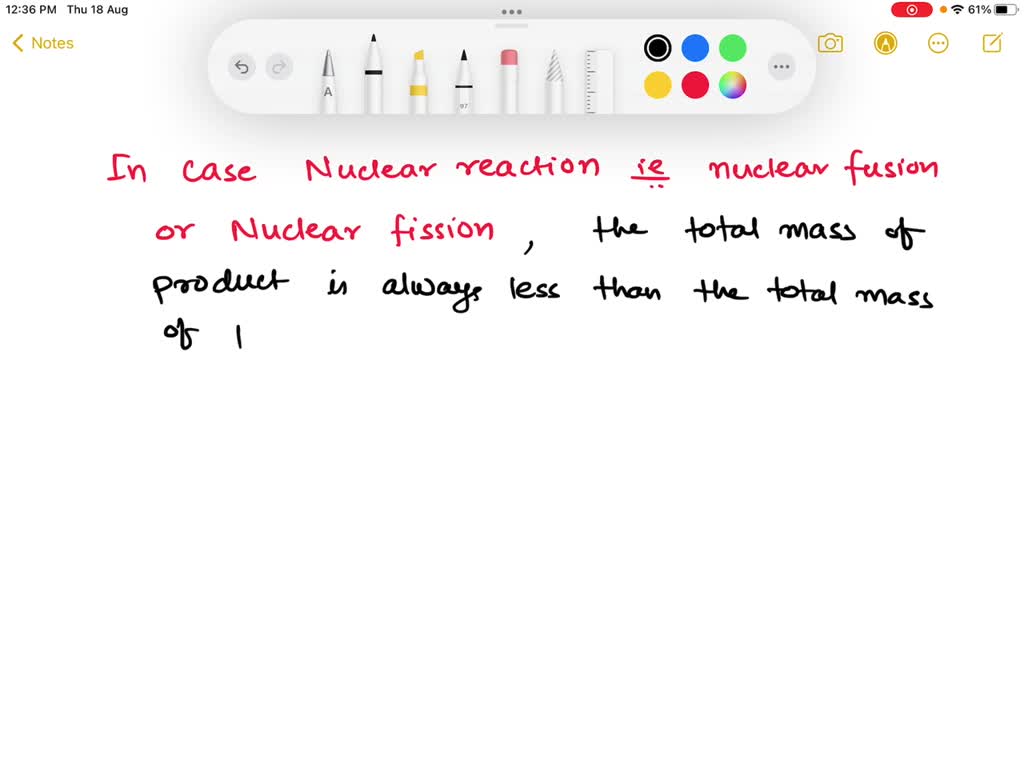 12:36 PM Thu 18 Aug
61%
Notes
A
97
In case Nuclear reaction ie nuclear fusion
or Nuclear fission, the total mass of
product is always less than the total mass
of